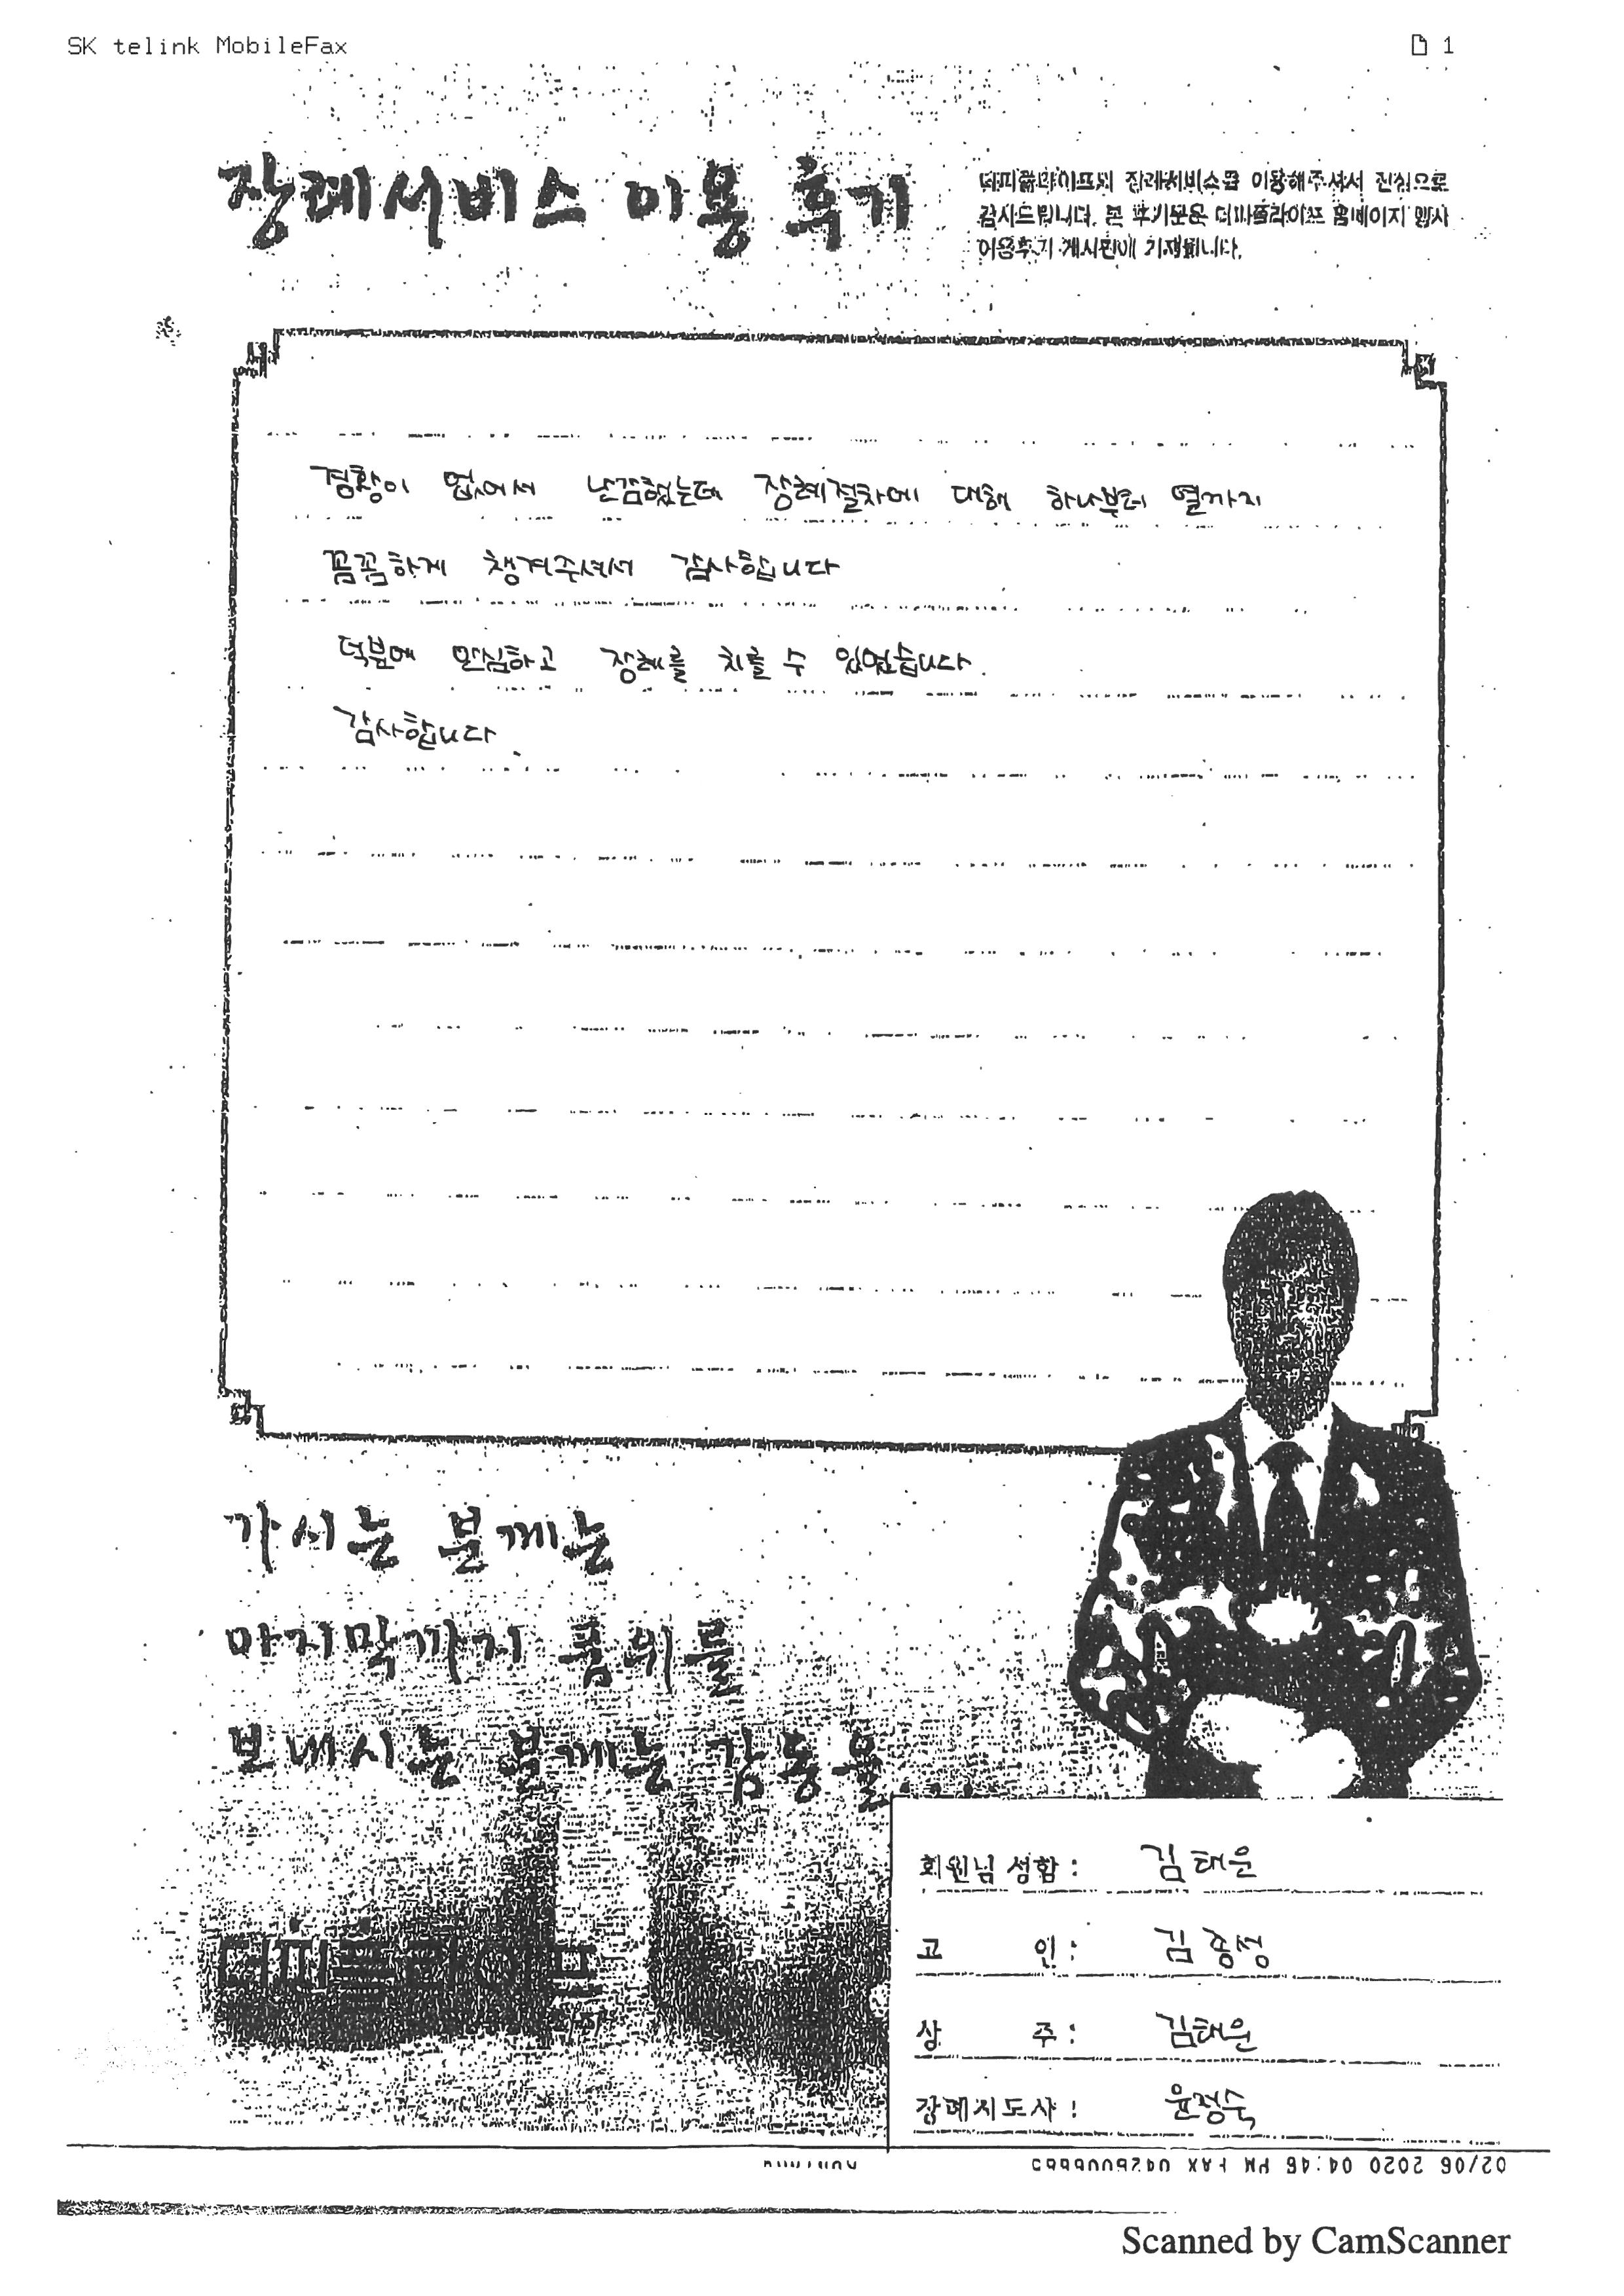 SK telink MobileFax
1
장례서비스 이용 후기
더피플라이프의 장례서비스를 이용해주셔서 진심으로
감사드립니다. 본 후기문은 더피플라이프 홈페이지 행사
이용후기 게시판에 기재됩니다.
경황이 없어서 난감했는데 장례절차에 대해 하나부터 열까지
꼼꼼하게 챙겨주셔서 감사합니다
덕분에 안심하고 장례를 치를 수 있었습니다.
감사합니다.
가시는 분께는
마지막까지 품위를
보내시는 분께는 감동을...
더피플라이프
회원님 성함 : 김태운
고 인 : 김종성
상 주 : 김태운
장례지도사 : 윤정숙
02/06 2020 04:46 PM FAX
Scanned by CamScanner